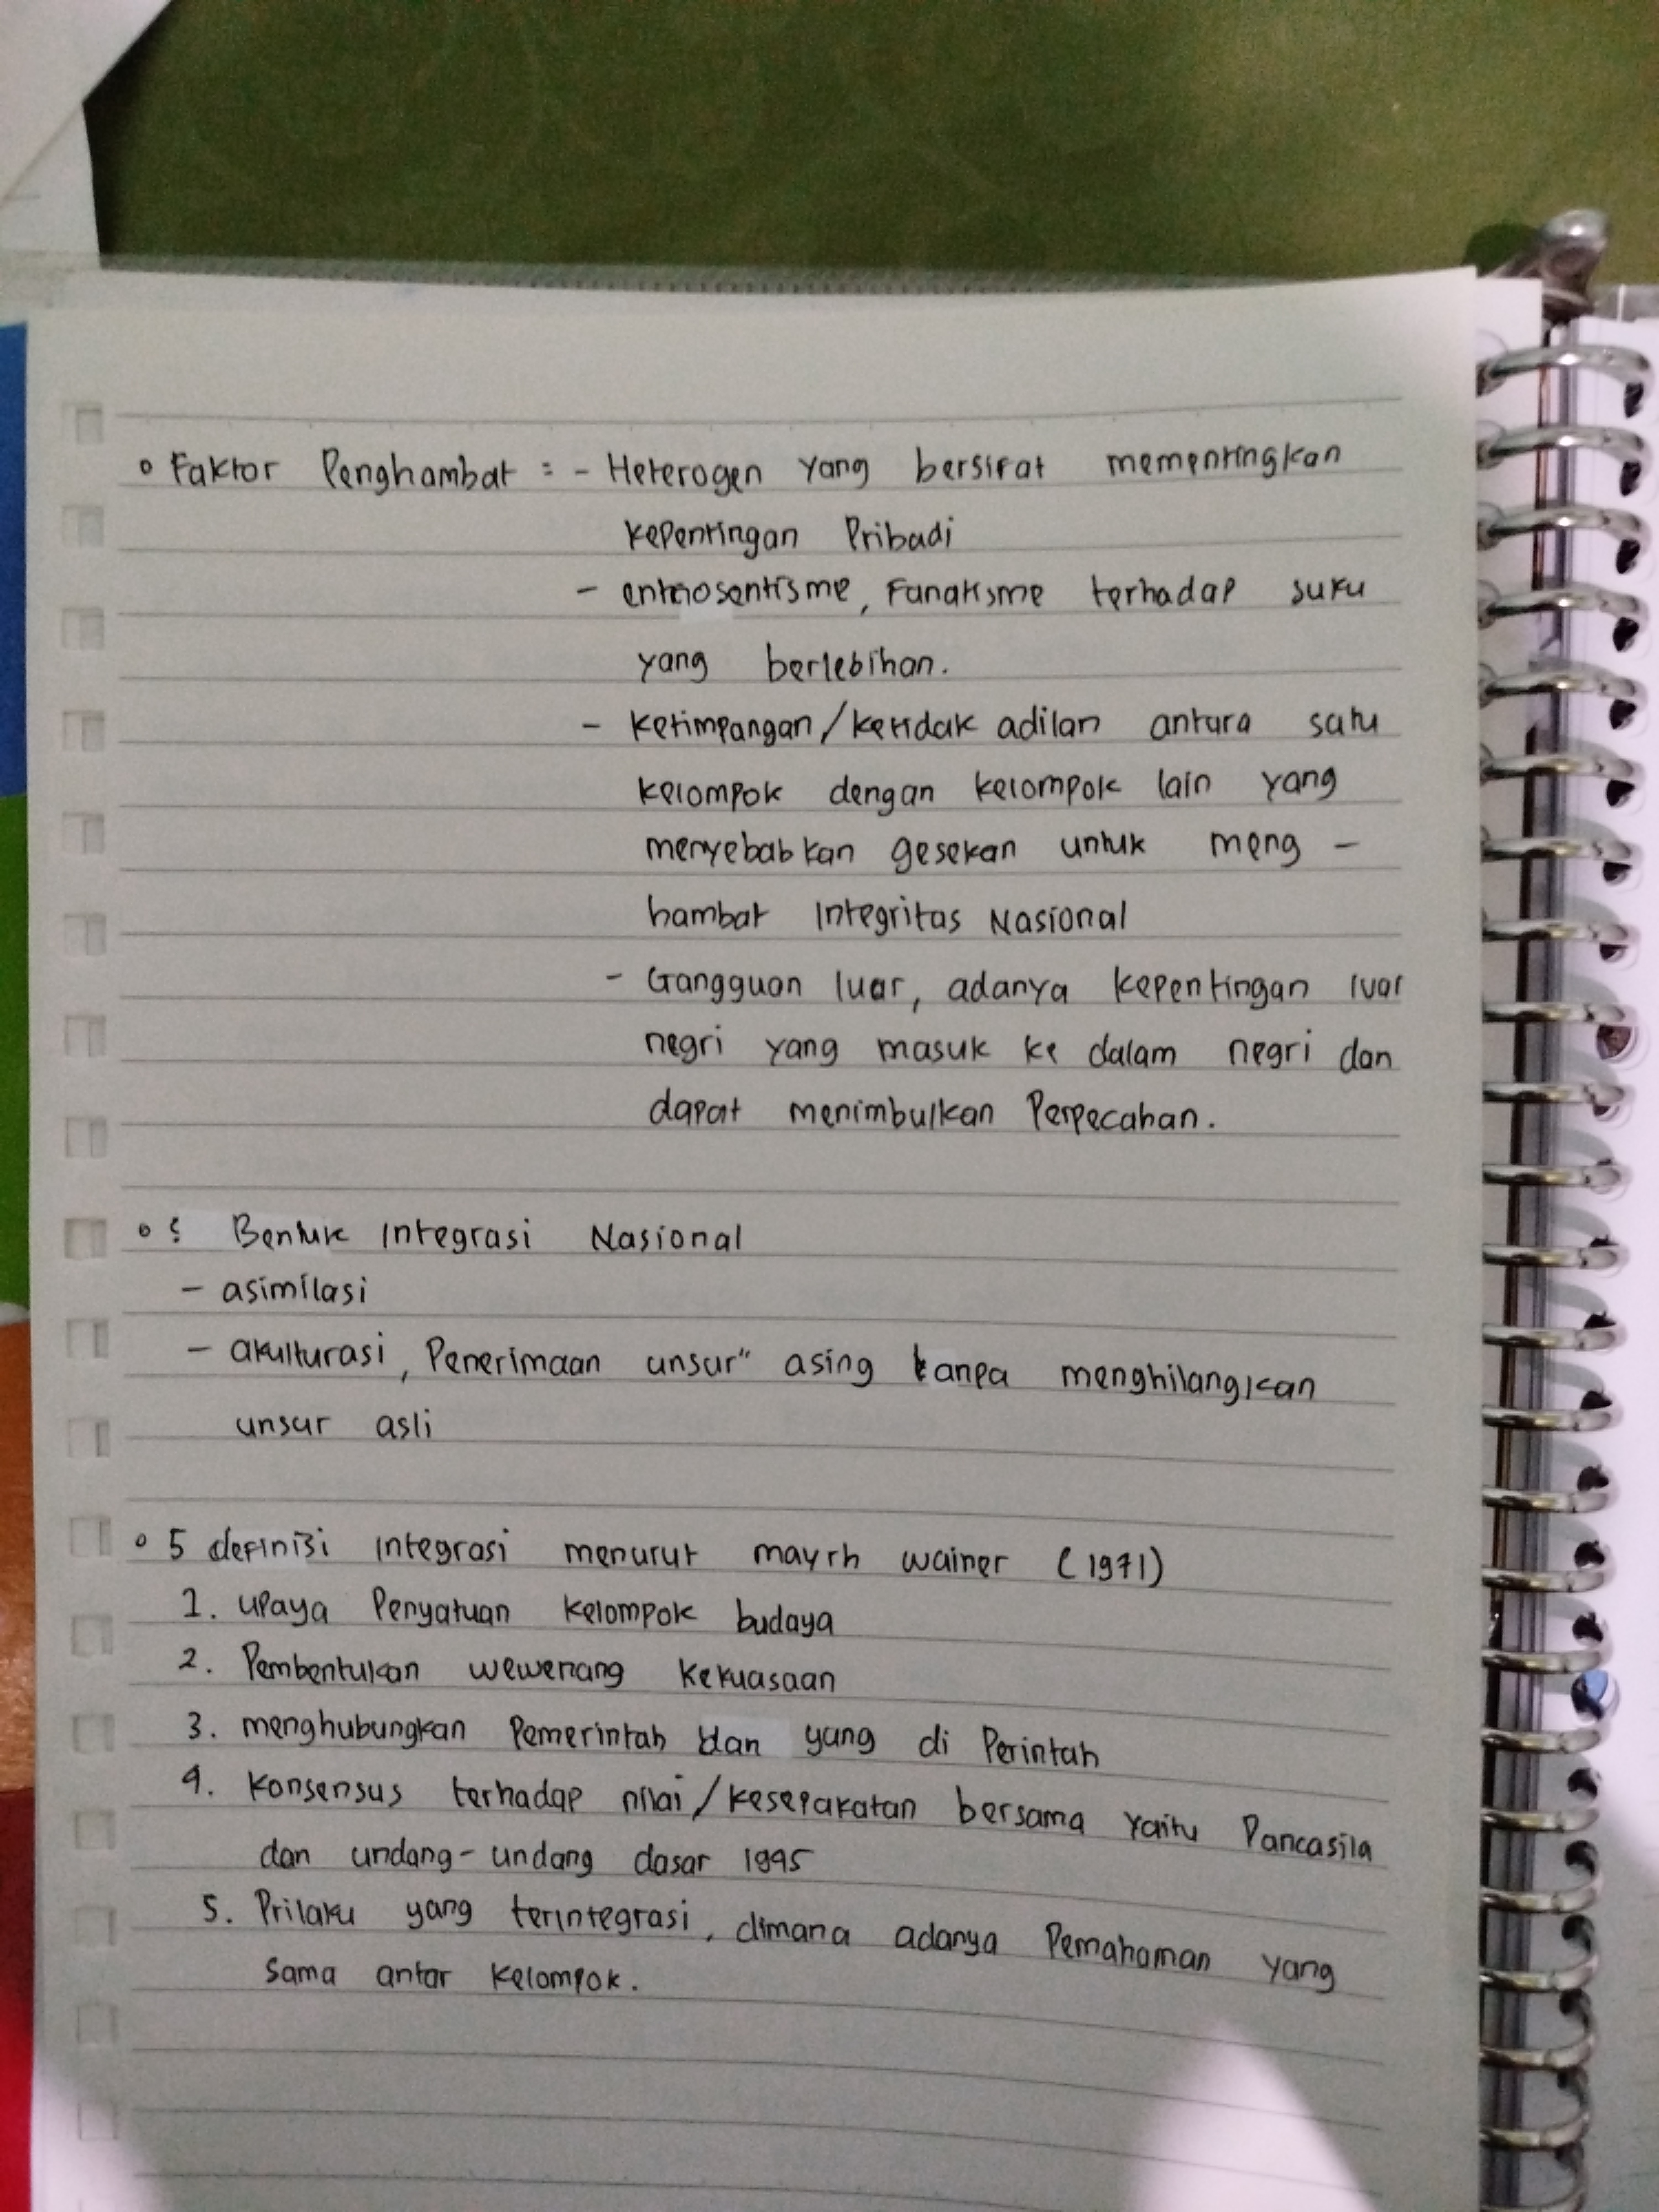 ° Faktor Penghambat = - Heterogen yang bersifat mementingkan
kepentingan Pribadi
- entnosentisme, Fanatisme terhadap suku
yang berlebihan.
- ketimpangan/ketidak adilan antara satu
kelompok dengan kelompok lain yang
menyebabkan gesekan untuk meng -
hambat Integritas Nasional
- Gangguan luar, adanya kepentingan luar
negri yang masuk ke dalam negri dan
dapat menimbulkan Perpecahan.
° : Bentuk Integrasi Nasional
- asimilasi
- akulturasi, Penerimaan unsur" asing tanpa menghilangkan
unsur asli
° 5 definisi integrasi menurut mayrh wainer (1971)
1. upaya Penyatuan kelompok budaya
2. Pembentukan wewenang kekuasaan
3. menghubungkan Pemerintah dan yang di Perintah
4. konsensus terhadap nilai/kesepakatan bersama yaitu Pancasila
dan undang-undang dasar 1945
5. Prilaku yang terintegrasi, dimana adanya Pemahaman yang
sama antar kelompok.